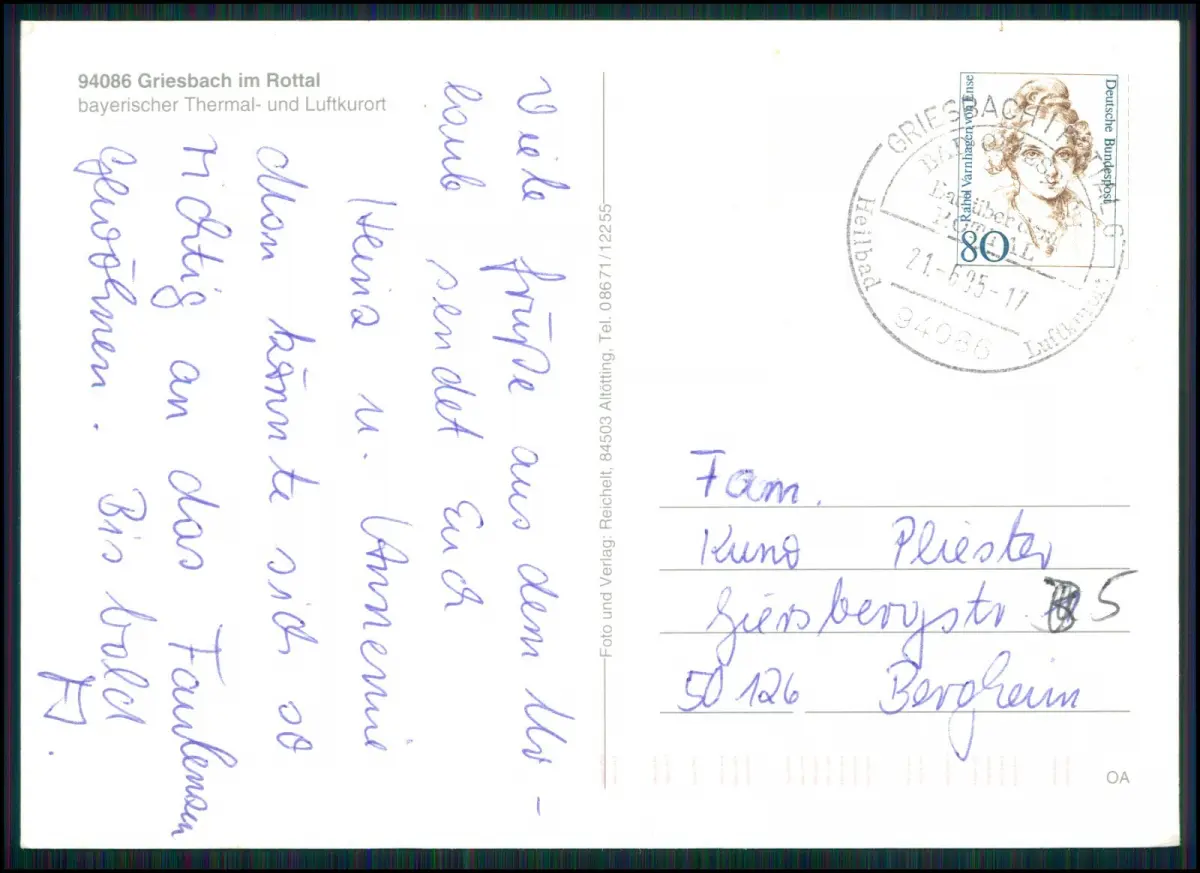 94086 Griesbach im Rottal
bayerischer Thermal- und Luftkurort
Viele Grüße aus dem Ur-
laub sendet Euch
Heinz u. Annemie
Man könnte sich so
richtig an das Faulensen
Gewöhnen. Bis bald
Foto und Verlag: Reichelt, 84503 Altötting, Tel. 08671/12255
Deutsche Bundespost
Rahel Varnhagen von Ense
80
GRIESBACH I.
Heilbad
Luftkurort
21.-6.95-17
94086
Fam.
Kuno Pliester
Giersbergstr. 5
50126 Bergheim
OA